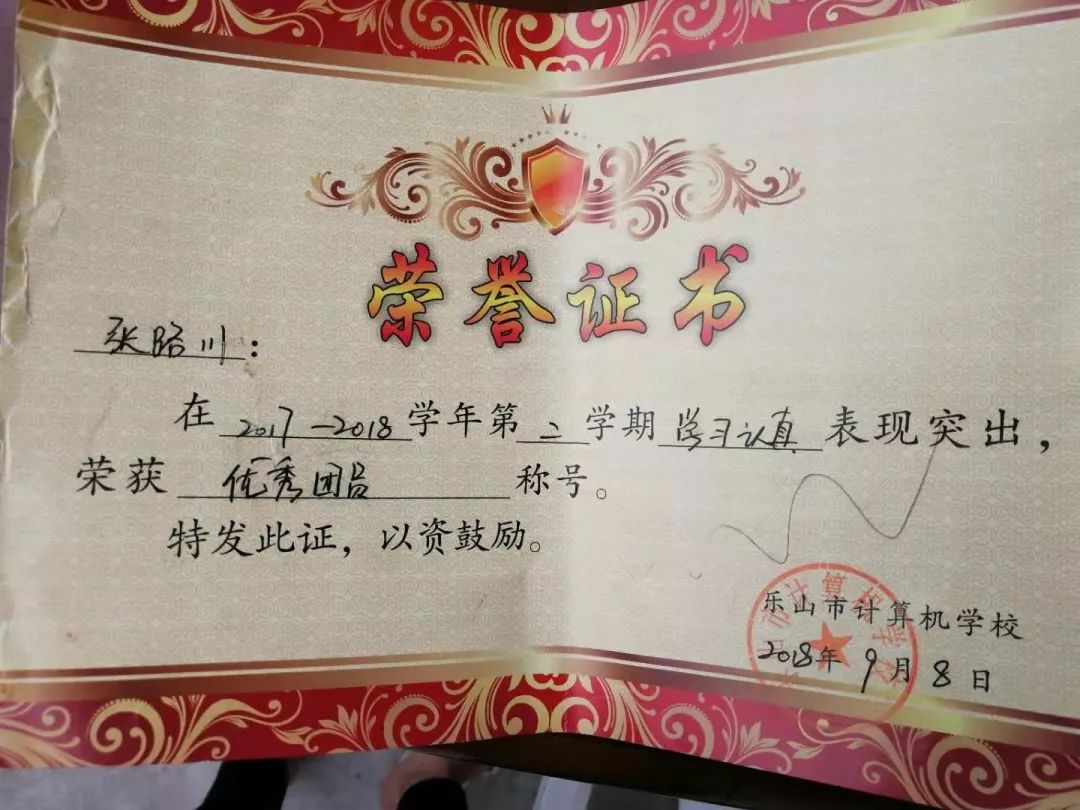 荣誉证书
张路川：
在2017-2018学年第二学期学习认真表现突出，
荣获优秀团员称号。
特发此证，以资鼓励。
乐山市计算机学校
2018年9月8日